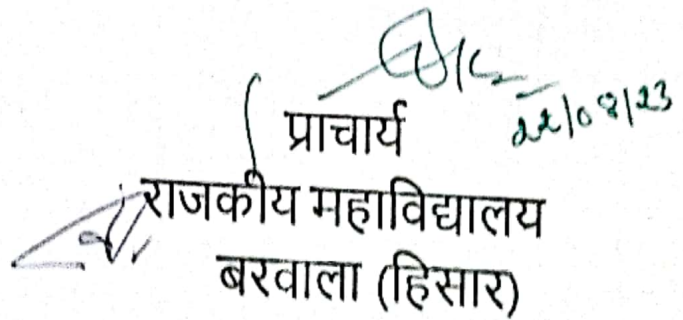 22/08/23
प्राचार्य
राजकीय महाविद्यालय
बरवाला (हिसार)